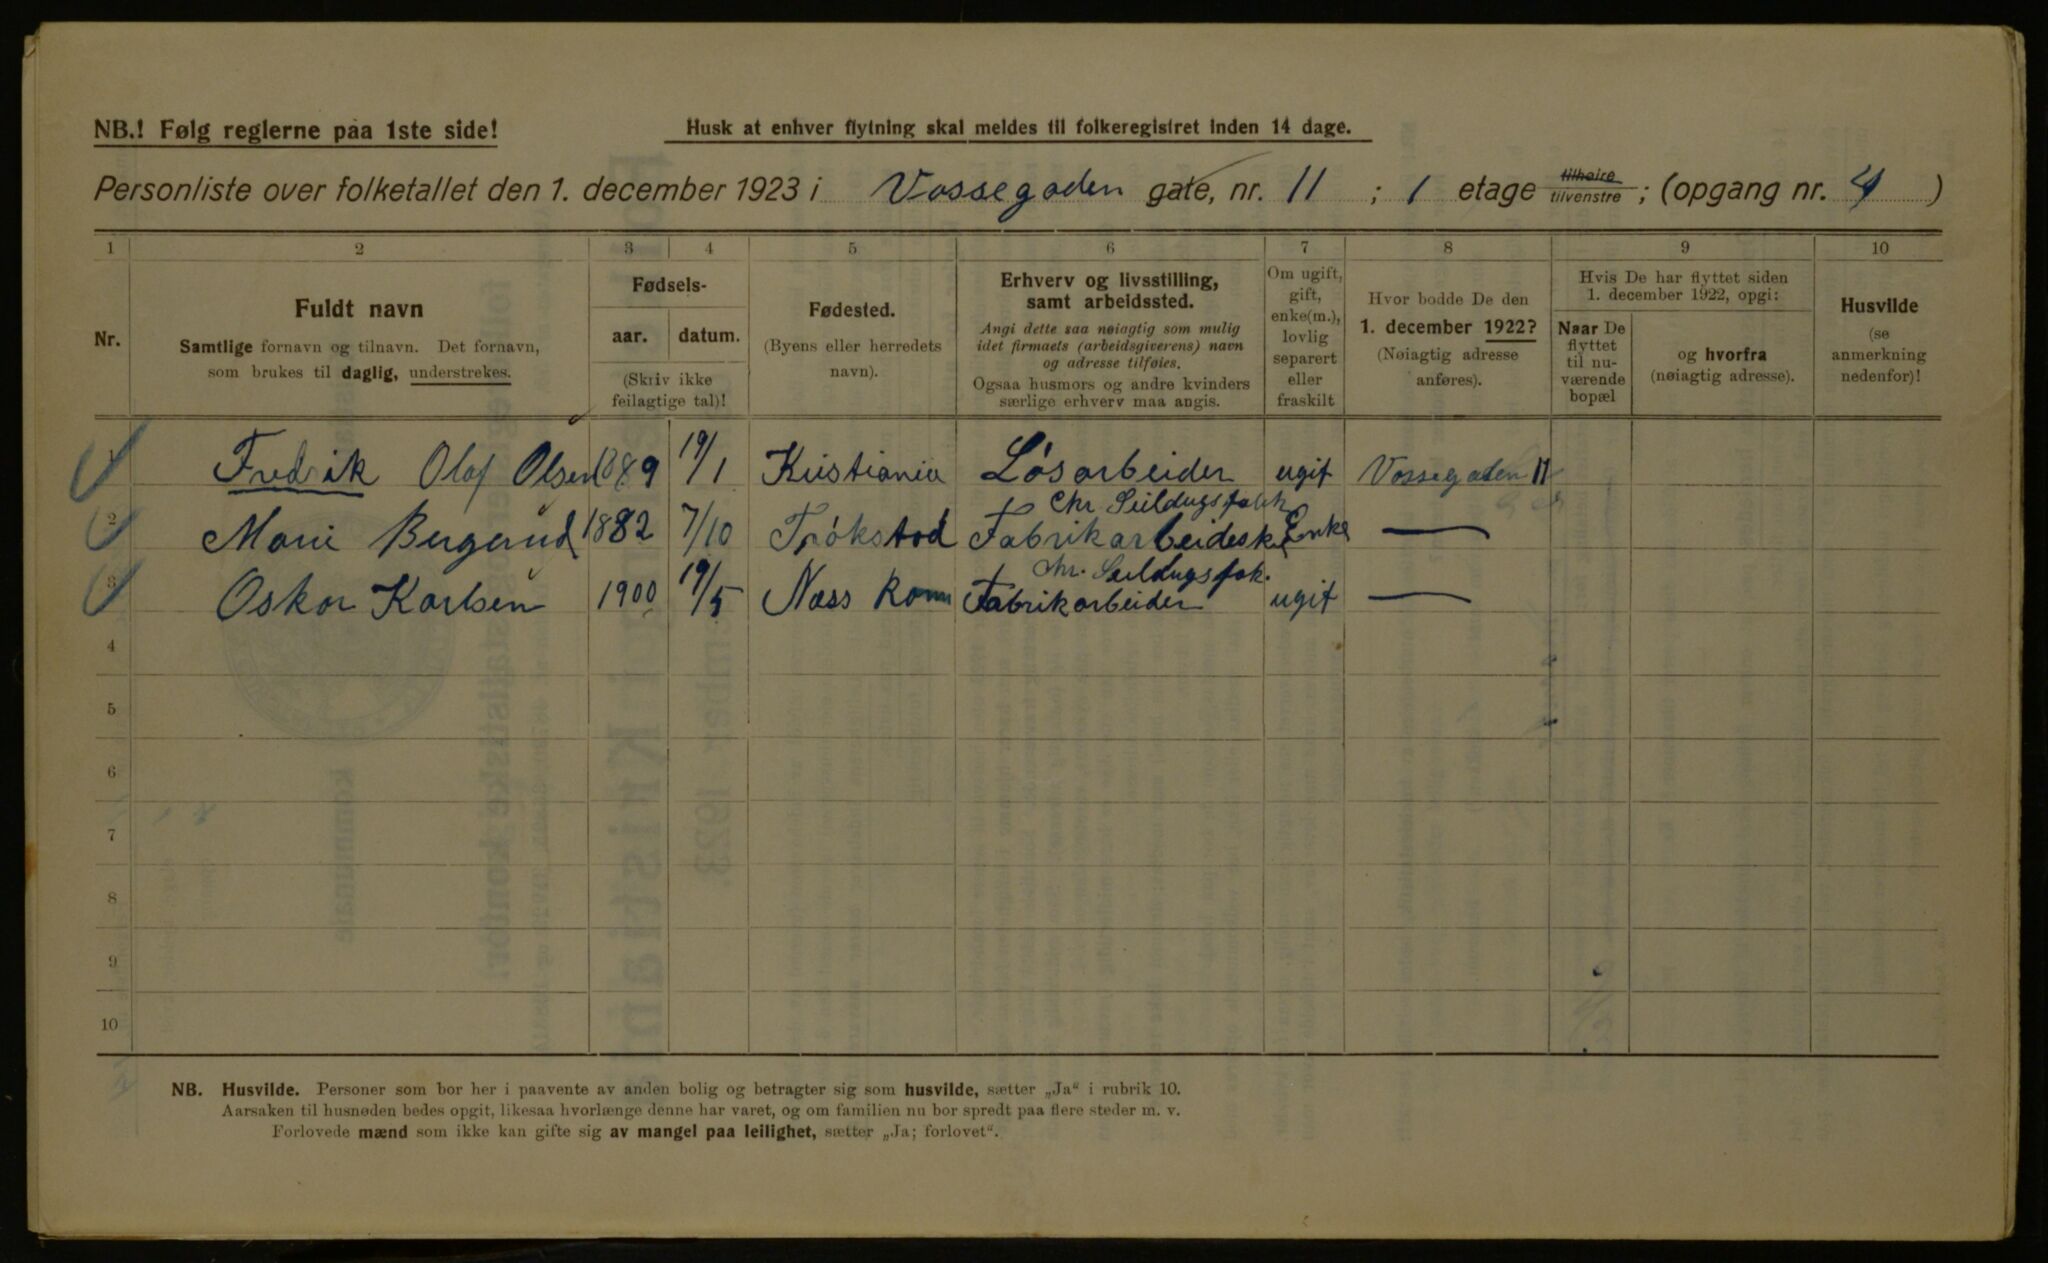 NB.! Følg reglerne paa 1ste side!
Husk at enhver flytning skal meldes til folkeregistret inden 14 dage.
Personliste over folketallet den 1. december 1923 i Vossegaden gate, nr. 11 ; 1 etage tilhøire tilvenstre ; (opgang nr. 4 )
1 2 3 4 5 6 7 8 9 10
Nr.
Fuldt navn
Samtlige fornavn og tilnavn. Det fornavn,
som brukes til daglig, understrekes.
Fødsels-
aar. datum.
(Skriv ikke
feilagtige tal)!
Fødested.
(Byens eller herredets
navn).
Erhverv og livsstilling,
samt arbeidssted.
Angi dette saa nøiagtig som mulig
idet firmaets (arbeidsgiverens) navn
og adresse tilføies.
Ogsaa husmors og andre kvinders
særlige erhverv maa angis.
Om ugift,
gift,
enke(m.),
lovlig
separert
eller
fraskilt
Hvor bodde De den
1. december 1922?
(Nøiagtig adresse
anføres).
Hvis De har flyttet siden
1. december 1922, opgi:
Naar De
flyttet
til nu-
værende
bopæl
og hvorfra
(nøiagtig adresse).
Husvilde
(se
anmerkning
nedenfor)!
1 Fredrik Olaf Olsen 1889 19/1 Kristiania Løsarbeider ugift Vossegaden 11
Chr Seildugsfabk
2 Marie Bergerud 1882 7/10 Trøkstad Fabrikarbeidesk Enke —
Chr. Seildugsfak.
3 Oskar Karlsen 1900 19/5 Næss Rom Fabrikarbeider ugift —
4
5
6
7
8
9
10
NB. Husvilde. Personer som bor her i paavente av anden bolig og betragter sig som husvilde, sætter „Ja“ i rubrik 10.
Aarsaken til husnøden bedes opgit, likesaa hvorlænge denne har varet, og om familien nu bor spredt paa flere steder m. v.
Forlovede mænd som ikke kan gifte sig av mangel paa leilighet, sætter „Ja; forlovet“.